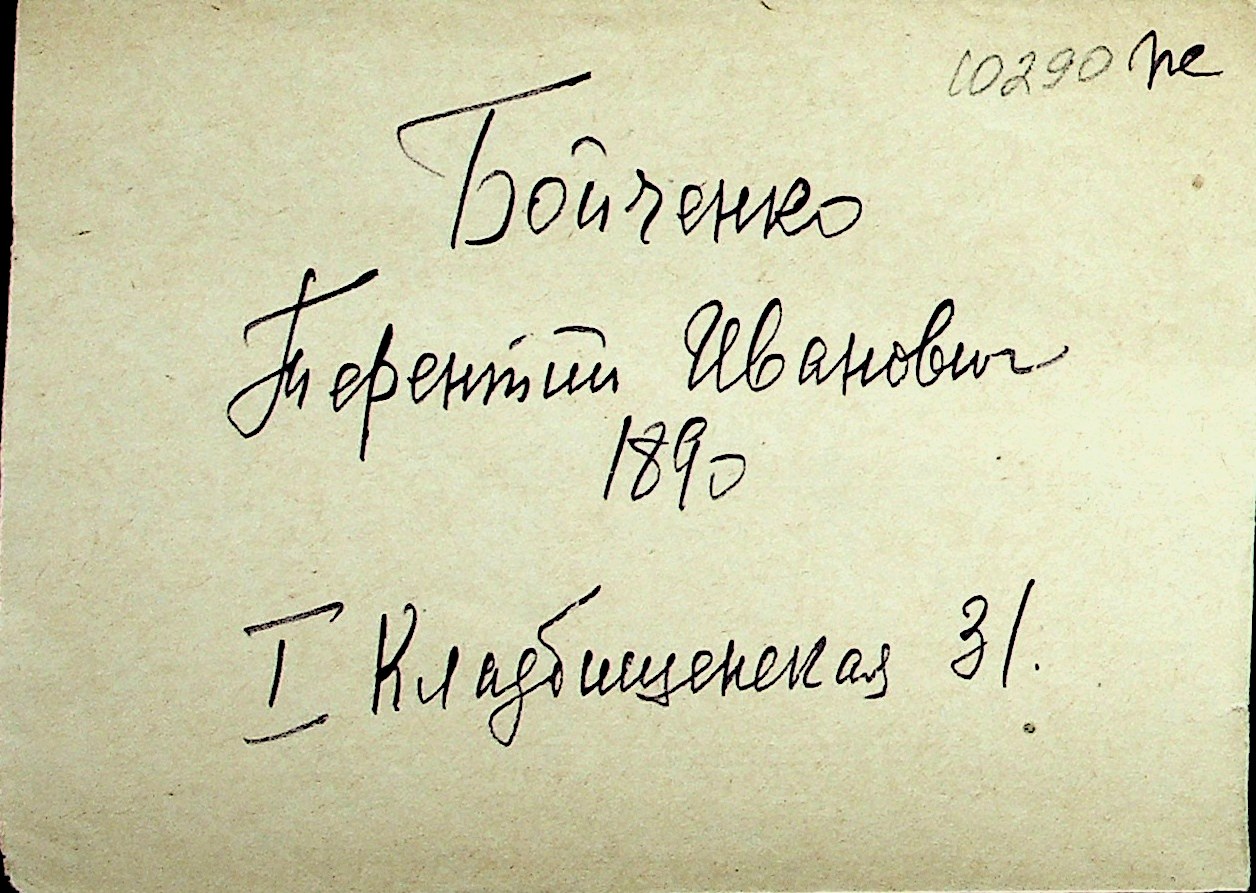 10290 пе
Бойченко
Терентий Иванович
1890
I Кладбищенская 31.